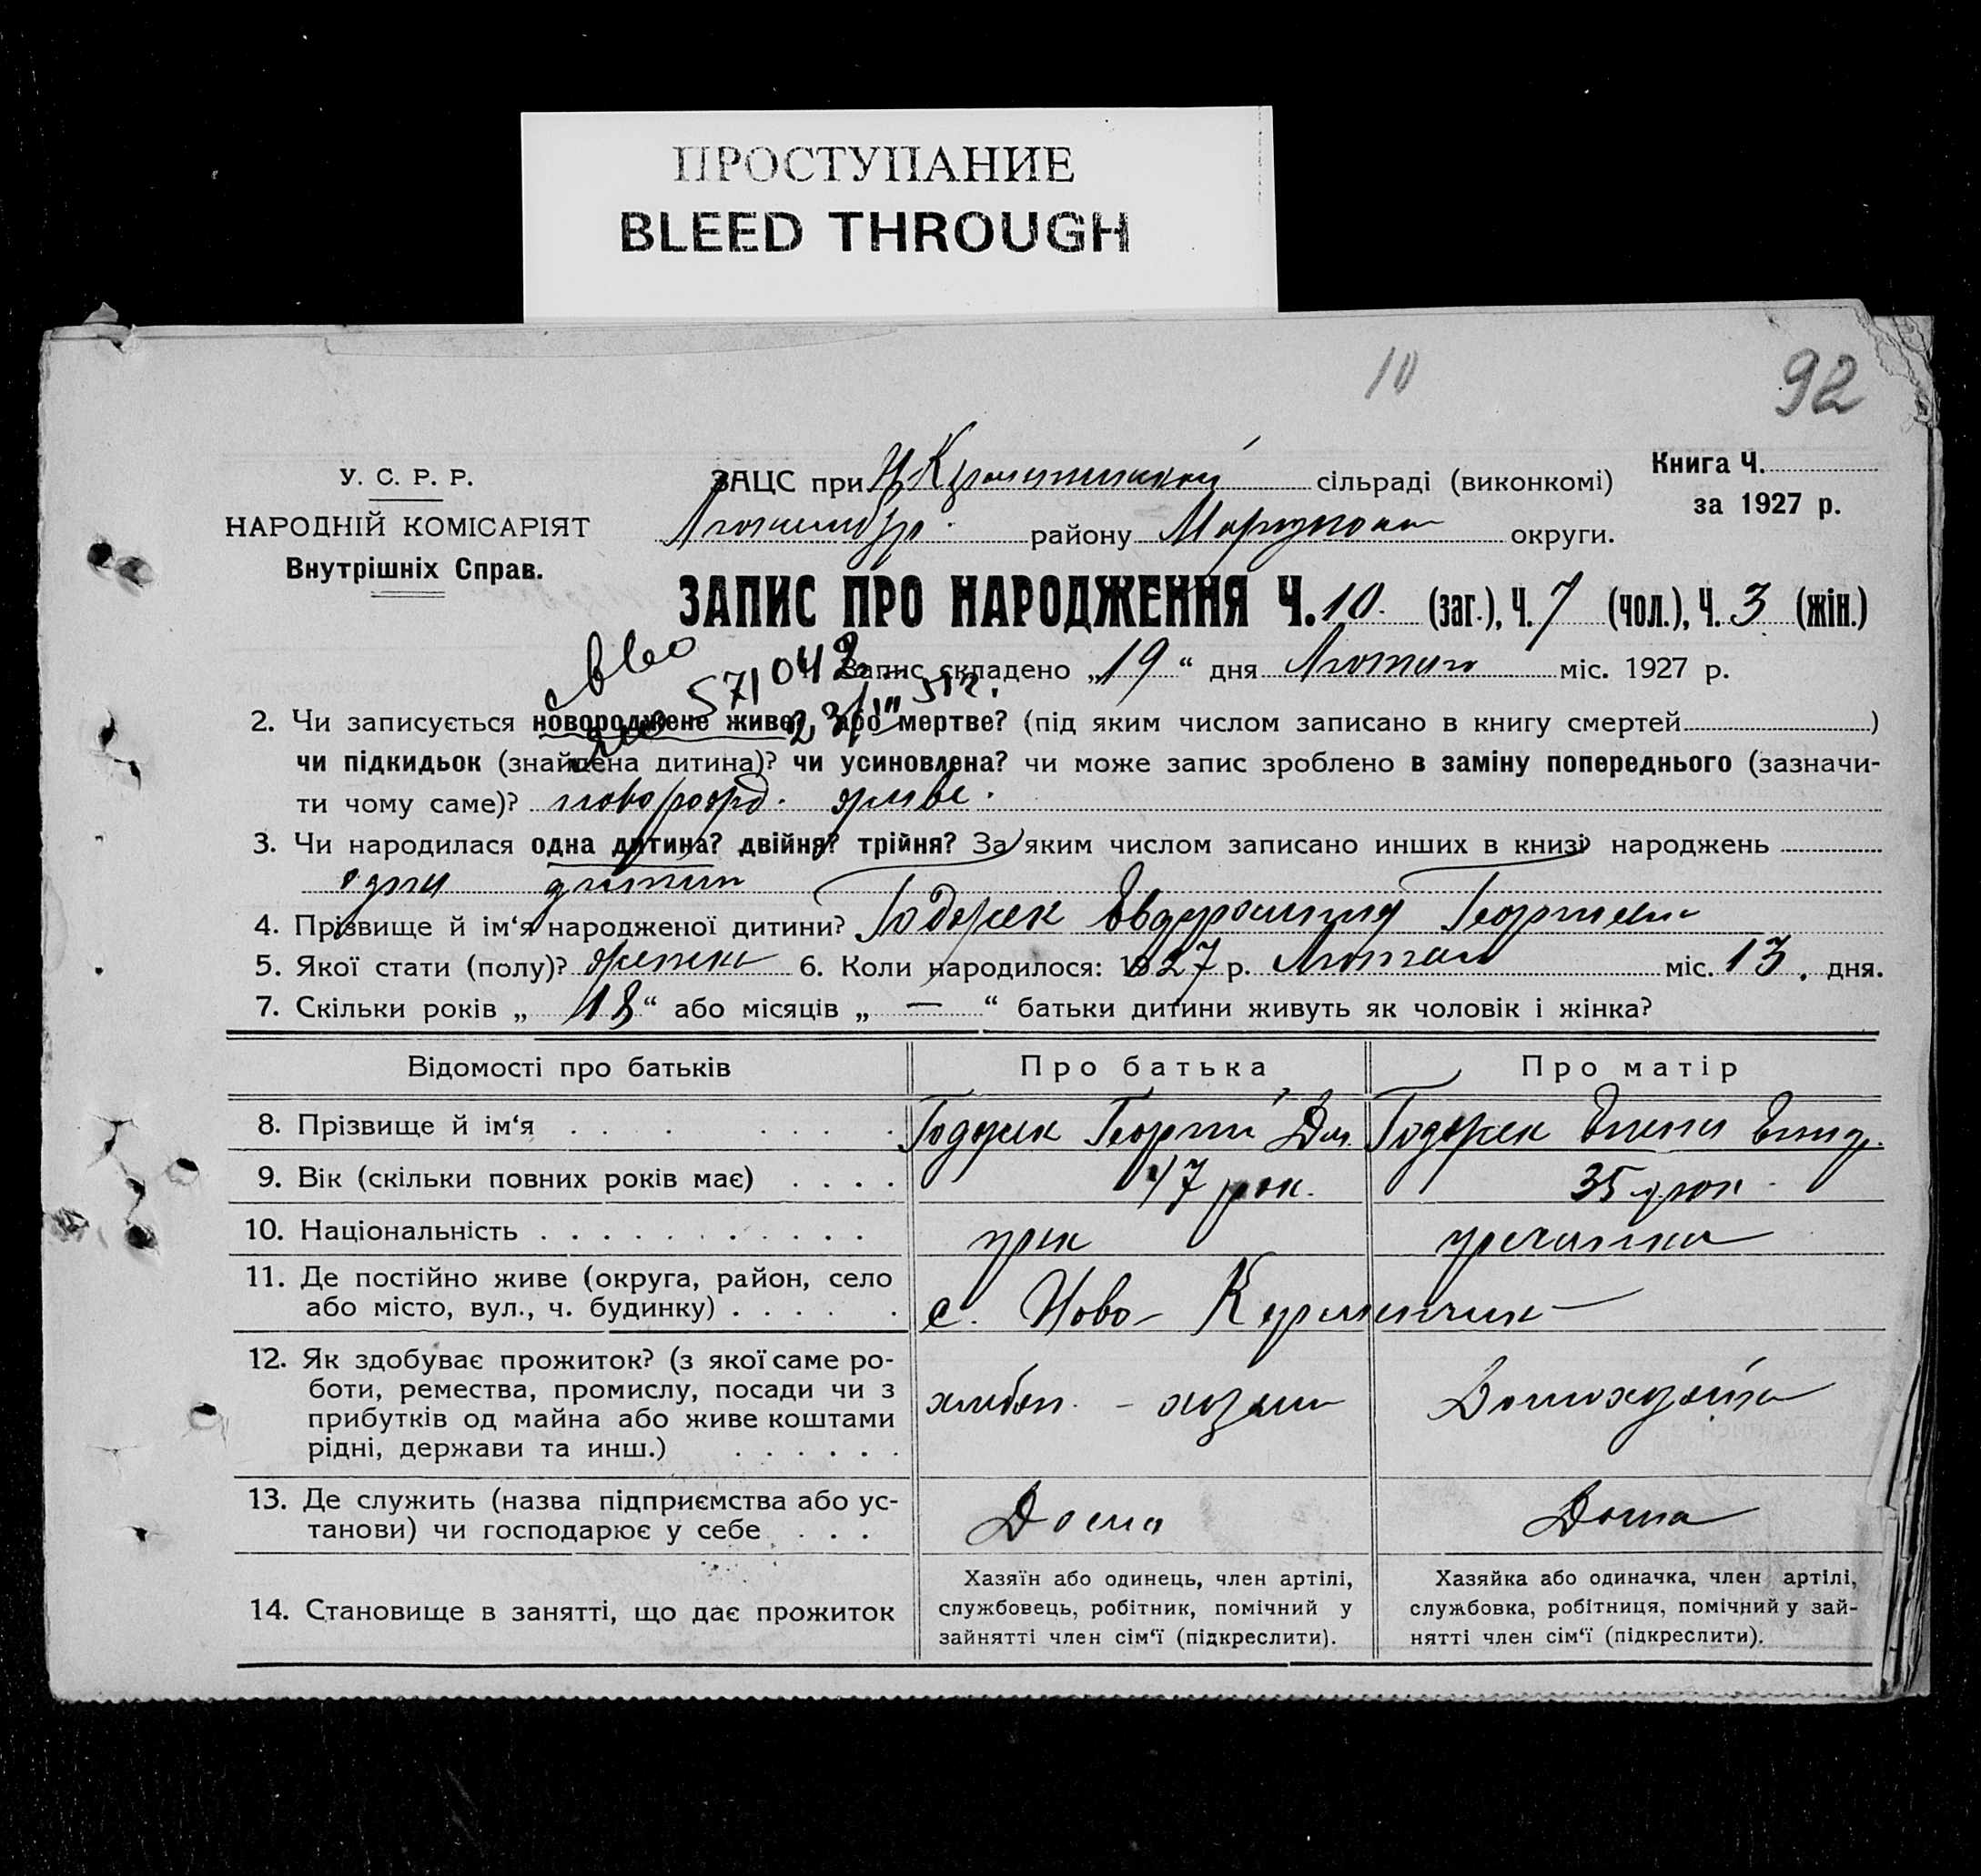 ПРОСТУПАНИЕ
BLEED THROUGH
10
92
У. С. Р. Р.
НАРОДНІЙ КОМІСАРІЯТ
Внутрішніх Справ.
ЗАЦС при сільраді (виконкомі)
району округи.
Книга Ч.
за 1927 р.
ЗАПИС ПРО НАРОДЖЕННЯ Ч. 10. (заг.), Ч. 7 (чол.), Ч. 3 (жін.)
571042
Запис складено „19“ дня Лютого міс. 1927 р.
2. Чи записується новороджене живе? або мертве? (під яким числом записано в книгу смертей )
чи підкидьок (знайдена дитина)? чи усиновлена? чи може запис зроблено в заміну попереднього (зазначи-
ти чому саме)? новорожд. живе.
3. Чи народилася одна дитина? двійня? трійня? За яким числом записано инших в книзі народжень
одна дитина
4. Прізвище й ім‘я народженої дитини?
5. Якої стати (полу)? 6. Коли народилося: 1927 р. Лютого міс. 13. дня.
7. Скільки років „ 18 “ або місяців „ — “ батьки дитини живуть як чоловік і жінка?
Відомості про батьків Про батька Про матір
8. Прізвище й ім‘я
9. Вік (скільки повних років має) 47 рок. 35 рок.
10. Національність грек гречанка
11. Де постійно живе (округа, район, село
або місто, вул., ч. будинку) с. Ново-Керменчик
12. Як здобуває прожиток? (з якої саме ро-
боти, ремества, промислу, посади чи з
прибутків од майна або живе коштами
рідні, держави та инш.)
13. Де служить (назва підприємства або ус-
танови) чи господарює у себе Дома Дома
14. Становище в занятті, що дає прожиток
Хазяїн або одинець, член артілі,
службовець, робітник, помічний у
зайнятті член сім‘ї (підкреслити).
Хазяйка або одиначка, член артілі,
службовка, робітниця, помічний у зай-
нятті член сім‘ї (підкреслити).